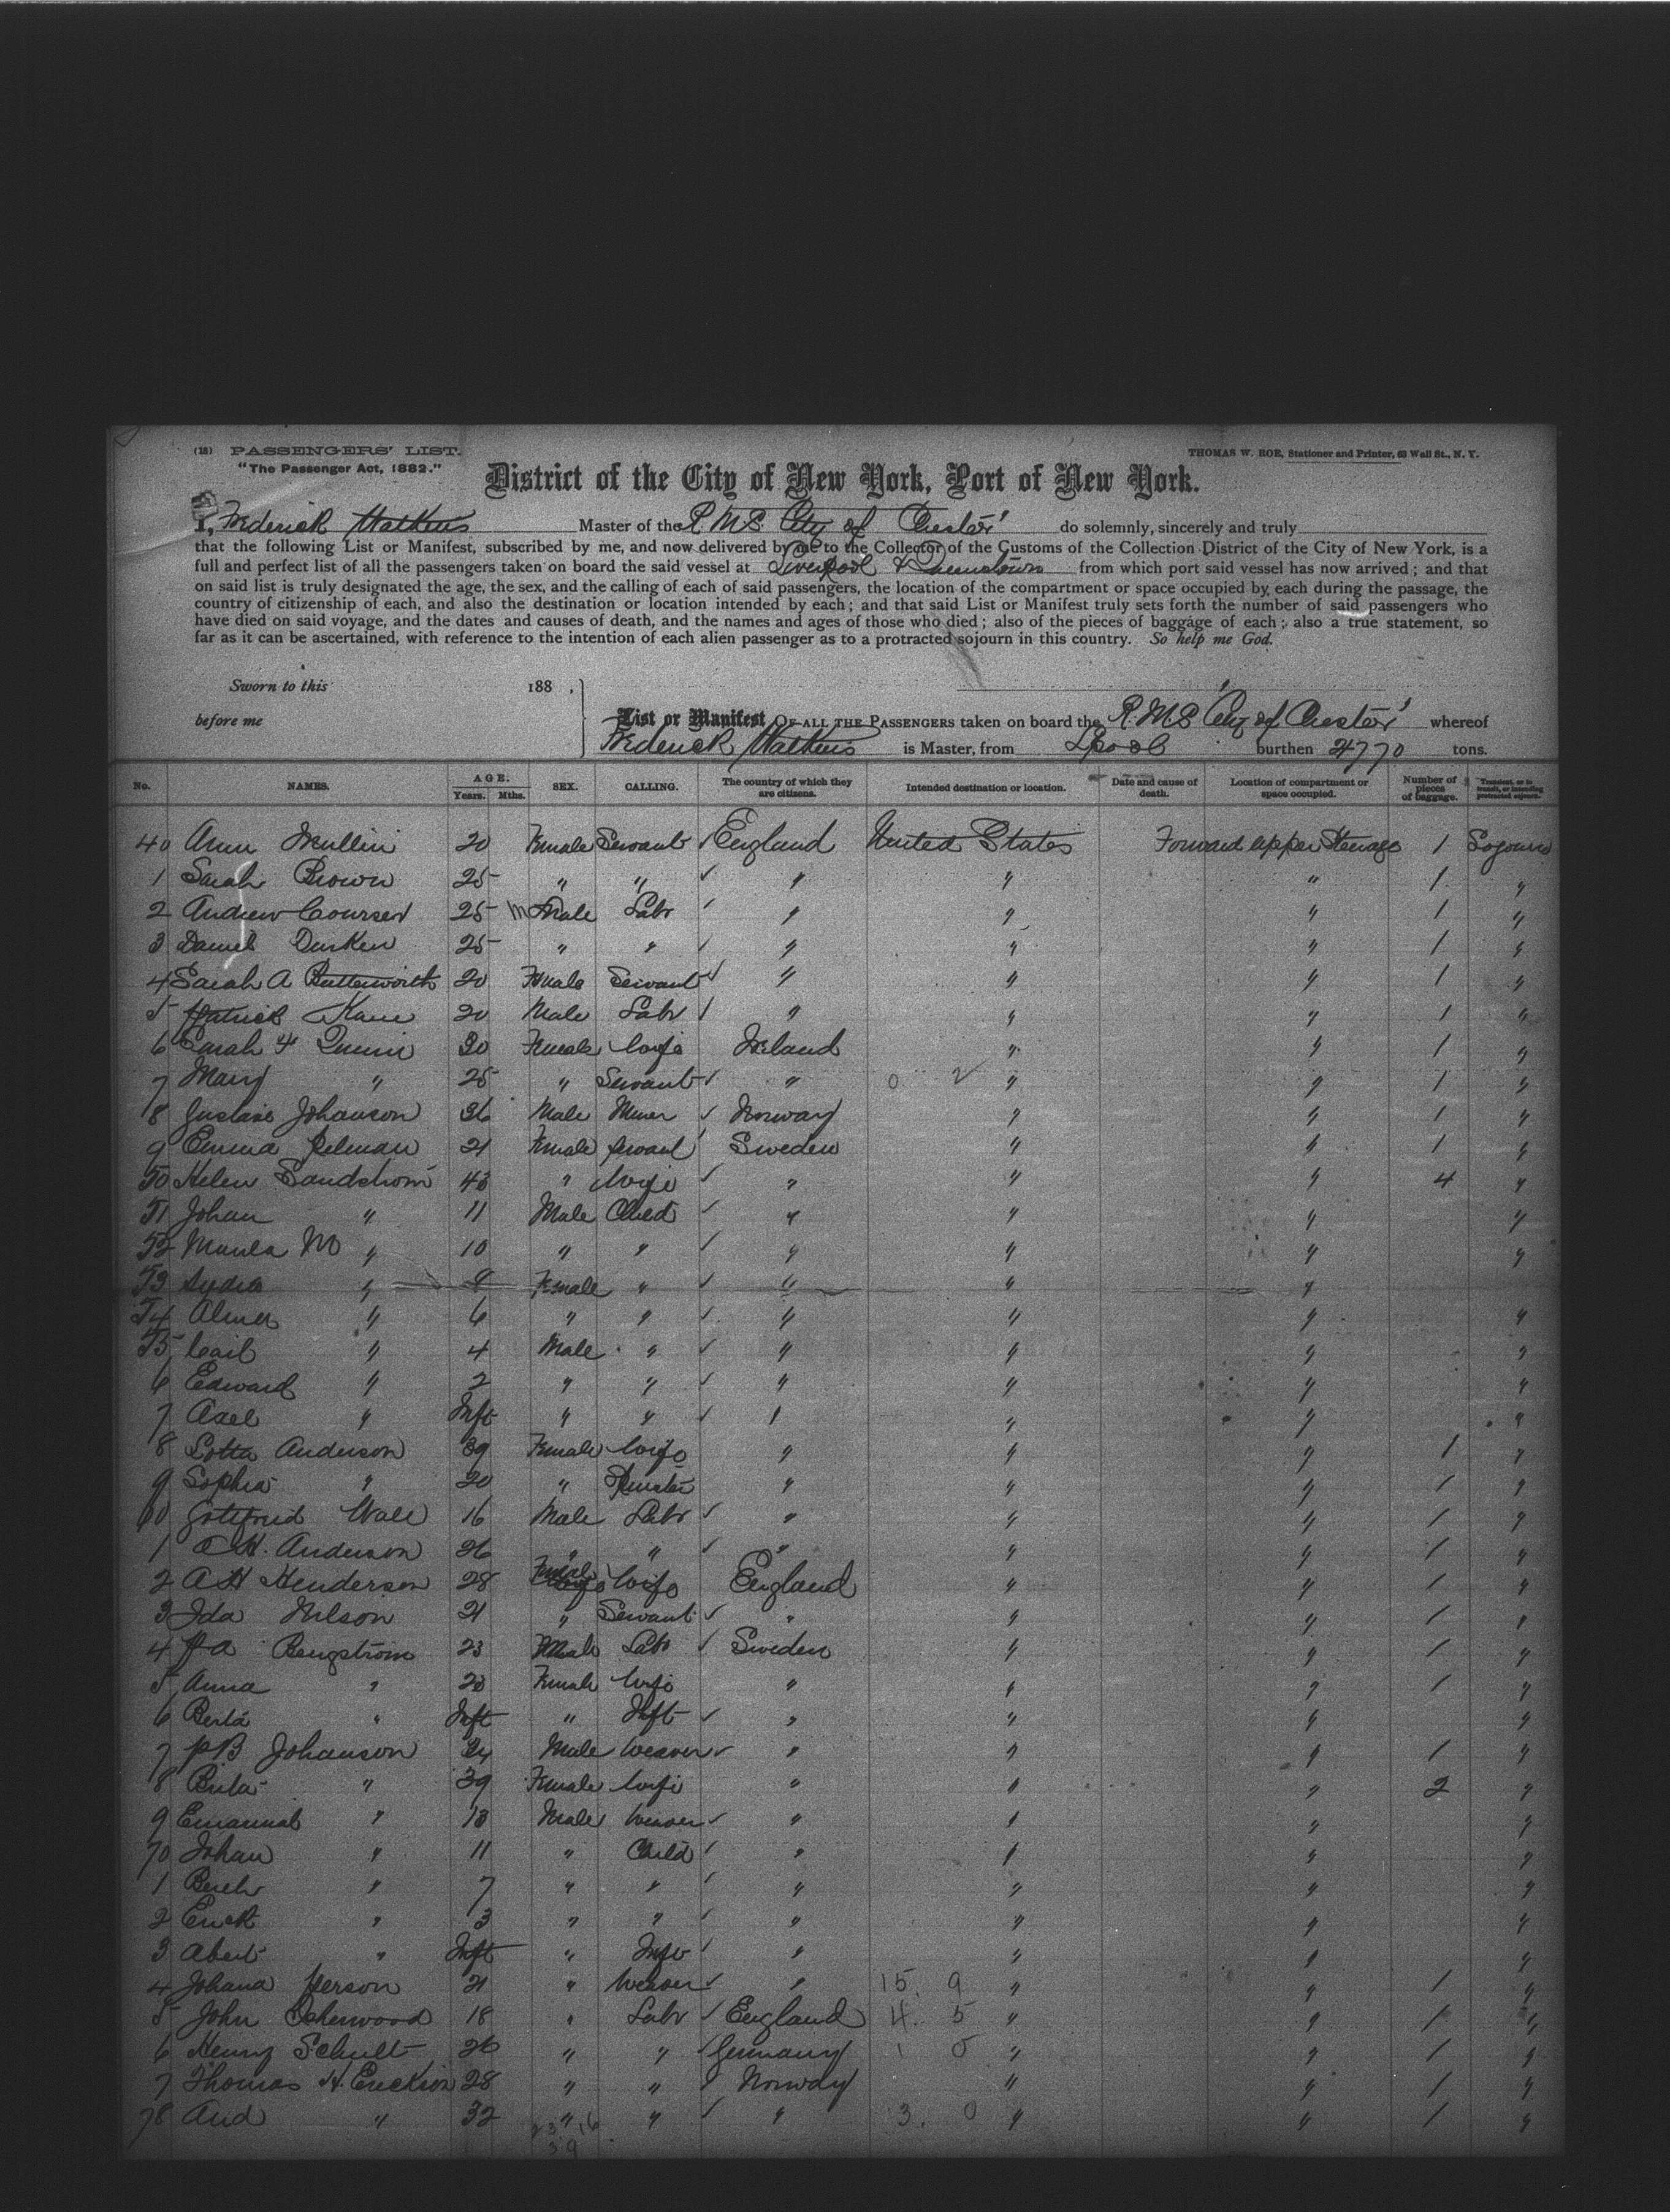 (18) PASSENGERS' LIST.
THOMAS W. ROE, Stationer and Printer, 63 Wall St., N. Y.
"The Passenger Act, 1882."
District of the City of New York, Port of New York.
I, Frederick Watkins Master of the R.M.S. City of Chester' do solemnly, sincerely and truly
that the following List or Manifest, subscribed by me, and now delivered by me to the Collector of the Customs of the Collection District of the City of New York, is a
full and perfect list of all the passengers taken on board the said vessel at Liverpool & Queenstown from which port said vessel has now arrived; and that
on said list is truly designated the age, the sex, and the calling of each of said passengers, the location of the compartment or space occupied by each during the passage, the
country of citizenship of each, and also the destination or location intended by each; and that said List or Manifest truly sets forth the number of said passengers who
have died on said voyage, and the dates and causes of death, and the names and ages of those who died; also of the pieces of baggage of each; also a true statement, so
far as it can be ascertained, with reference to the intention of each alien passenger as to a protracted sojourn in this country. So help me God.
Sworn to this 188 ,
before me
List or Manifest OF ALL THE PASSENGERS taken on board the R.M.S City of Chester' whereof
Frederick Watkins is Master, from Lpool burthen 4770 tons.
No. NAMES. AGE. Years. Mths. SEX. CALLING. The country of which they are citizens. Intended destination or location. Date and cause of death. Location of compartment or space occupied. Number of pieces of baggage. Transient, or in transit, or intending protracted sojourn.
40 Ann Mullin 20 Female Servant England United States Forward upper Steerage 1 Sojourn
1 Sarah Brown 25 " " " " " 1 "
2 Andrew 25 Male Labr " " " 1 "
3 Daniel Durken 25 " " " " " 1 "
4 Sarah A Butterworth 20 Female Servant " " " 1 "
5 Patrick Kane 20 Male Labr " " " 1 "
6 Sarah Quinn 30 Female Wife Ireland " " 1 "
7 Mary " 25 " Servant " " " 1 "
8 Gustave Johanson 36 Male Miner Norway " " 1 "
9 Emma 21 Female Servant Sweden " " 1 "
50 Helen Sandstrom 43 " Wife " " " 4 "
51 Johan " 11 Male Child " " " "
52 M " 10 " " " " " "
53 Lydia " Female " " " "
54 " 6 " " " " " "
55 Carl " 4 Male " " " " "
6 Edward " 2 " " " " " "
7 Axel " Inft " " " " " "
8 Lotta Anderson 39 Female Wife " " " 1 "
9 Sophia " 20 " Spinster " " " 1 "
60 Gottfried Wall 16 Male Labr " " " 1 "
1 Anderson 26 " " " " " 1 "
2 A H Henderson 28 Female Wife England " " 1 "
3 Ida Nilson 21 " Servant " " " 1 "
4 P A Bengström 23 Male Labr Sweden " " 1 "
5 Anna " 23 Female Wife " " " 1 "
6 Berta " Inft " Inft " " " "
7 P B Johanson 34 Male Weaver " " " 1 "
8 " 39 Female Wife " " " 2 "
9 Emanuel " 13 Male Weaver " " " "
70 Johan " 11 " Child " " " "
1 " 7 " " " " " "
2 Erick " 3 " " " " " "
3 " Inft " Inft " " " "
4 Johana Person 21 " Weaver " 15 9 " " 1 "
5 John 18 " Labr England 4 5 " " 1 "
6 Henry Schult 26 " " Germany 1 0 " " 1 "
7 Thomas H. Erickson 28 " " Norway " " 1 "
78 And " 32 " " " 3. 0 " " 1 "
23 16
39